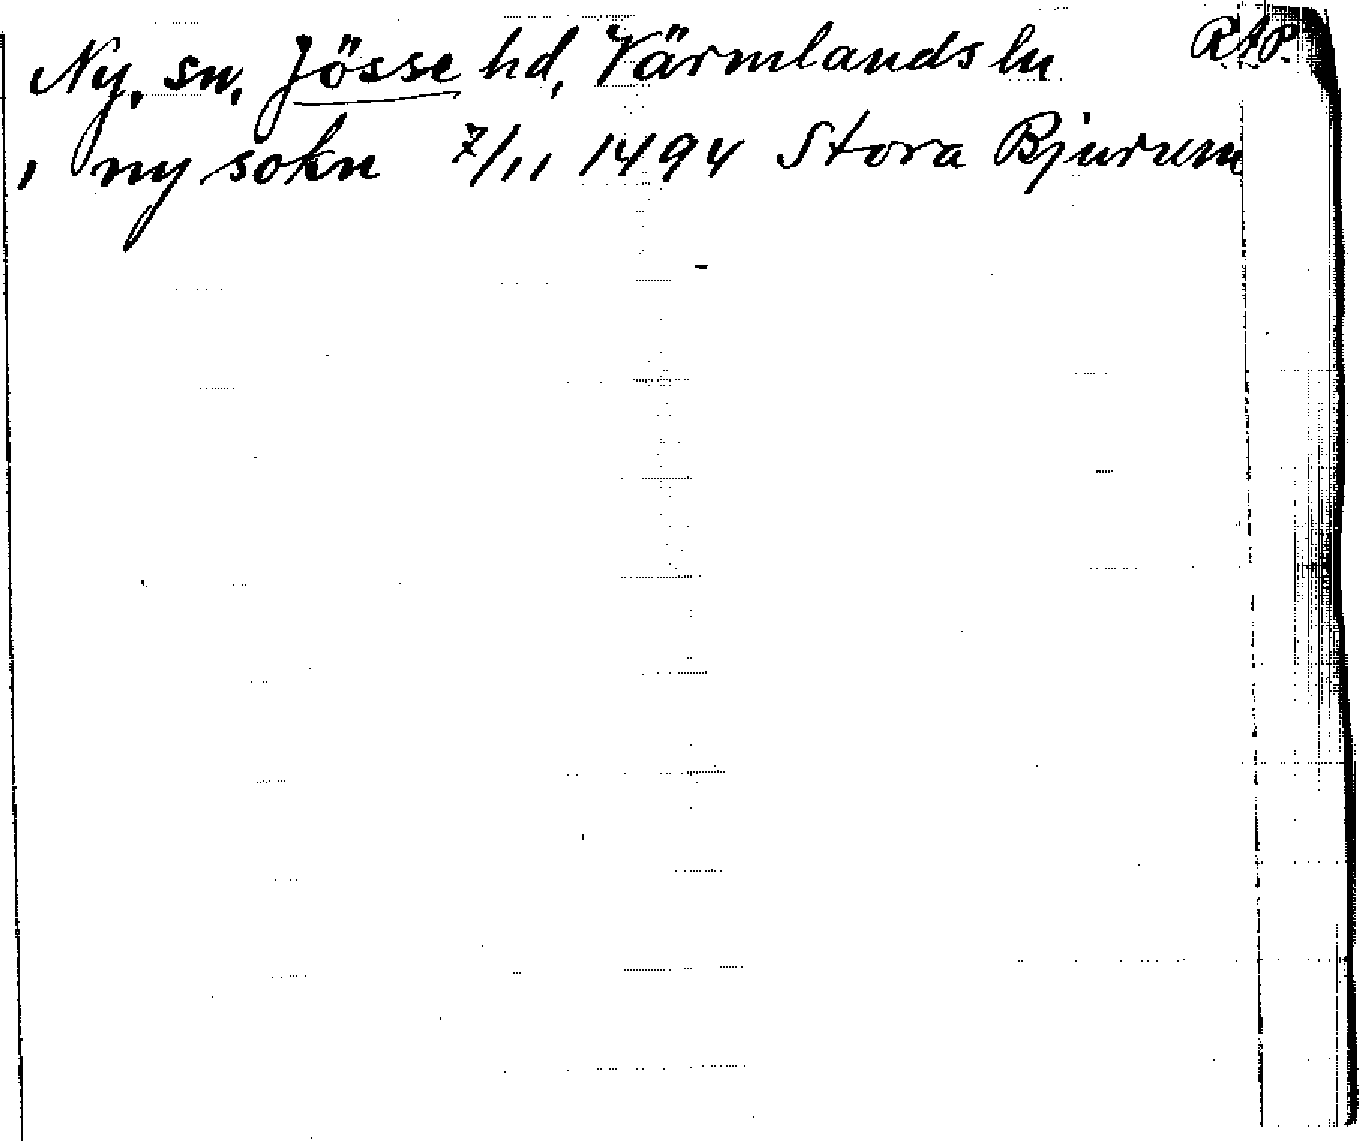 Ny, sn, Jösse hd, Värmlands ln RAP.
, ny sokn 7/11 1494 Stora Bjurum